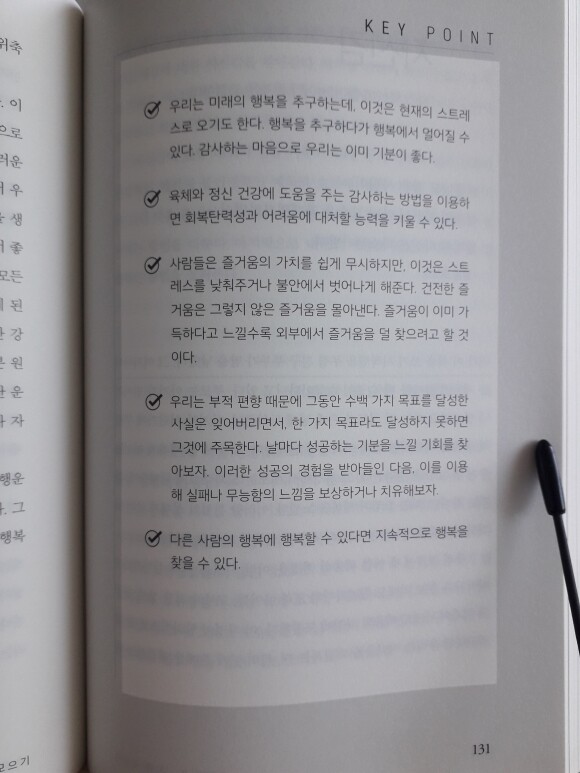 위축
이
으로
러운
우
생
좋
모든
된
강
원
운
자
행운
그
행복
KEY POINT
우리는 미래의 행복을 추구하는데, 이것은 현재의 스트레
스로 오기도 한다. 행복을 추구하다가 행복에서 멀어질 수
있다. 감사하는 마음으로 우리는 이미 기분이 좋다.
육체와 정신 건강에 도움을 주는 감사하는 방법을 이용하
면 회복탄력성과 어려움에 대처할 능력을 키울 수 있다.
사람들은 즐거움의 가치를 쉽게 무시하지만, 이것은 스트
레스를 낮춰주거나 불안에서 벗어나게 해준다. 건전한 즐
거움은 그렇지 않은 즐거움을 몰아낸다. 즐거움이 이미 가
득하다고 느낄수록 외부에서 즐거움을 덜 찾으려고 할 것
이다.
우리는 부적 편향 때문에 그동안 수백 가지 목표를 달성한
사실은 잊어버리면서, 한 가지 목표라도 달성하지 못하면
그것에 주목한다. 날마다 성공하는 기분을 느낄 기회를 찾
아보자. 이러한 성공의 경험을 받아들인 다음, 이를 이용
해 실패나 무능함의 느낌을 보상하거나 치유해보자.
다른 사람의 행복에 행복할 수 있다면 지속적으로 행복을
찾을 수 있다.
131